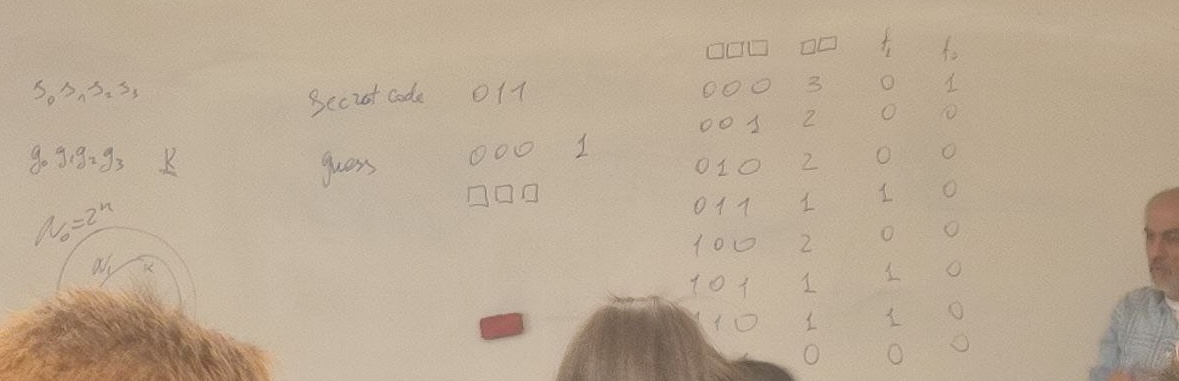 S₀S₁S₂S₃
g₀g₁g₂g₃ K
N₀=2ⁿ
N₁ K
Secret code 011
guess 000 1
□□□
□□□ □□ f₁ f₀
000 3 0 1
001 2 0 0
010 2 0 0
011 1 1 0
100 2 0 0
101 1 1 0
110 1 1 0
0 0 0